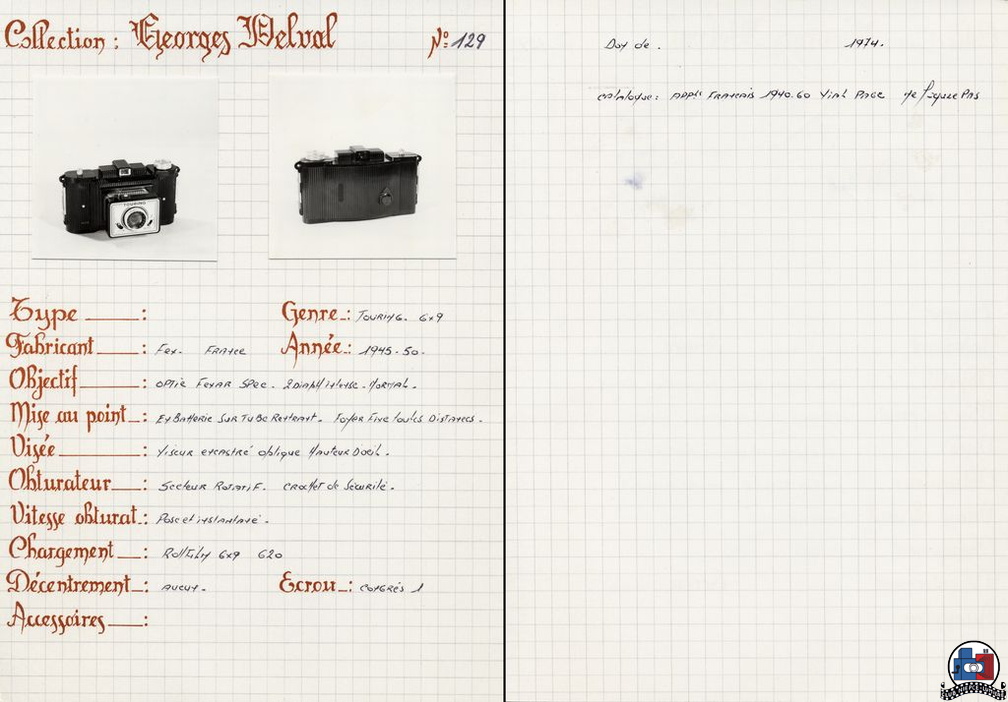 Collection : Georges Delval Nº 129
TOURING
Type : Genre : TOURING. 6x9
Fabricant : Fex. FRANCE Année : 1945-50.
Objectif : OPTIC FEXAR SPEC. 2 Diaph intense. Normal.
Mise au point : En Batterie SUR TUBE Rentrant. Foyer Fixe toutes Distances.
Visée : Viseur encastré oblique Hauteur D'oeil.
Obturateur : Secteur Rotatif. Crochet de Sécurité.
Vitesse obturat : Pose et instantané.
Chargement : Rollfilm 6x9 620
Décentrement : AUCUN. Ecrou : CONGRÈS 1
Accessoires :
Don de . 1974.
catalogue: APPls FRANCAIS 1940.60 Vial PAGE ne figure Pas